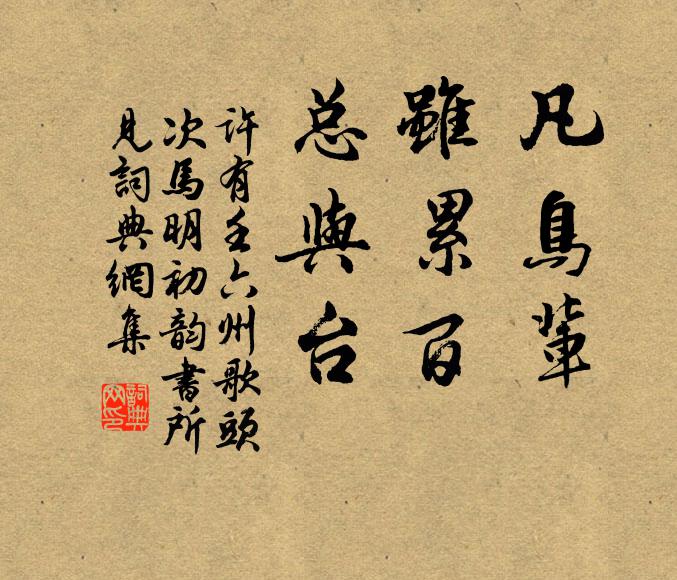 凡鳥輩
雖累百
总輿台
许有壬六州歌頭
次馬明初韵書所
見詞典網集
詞典
网印